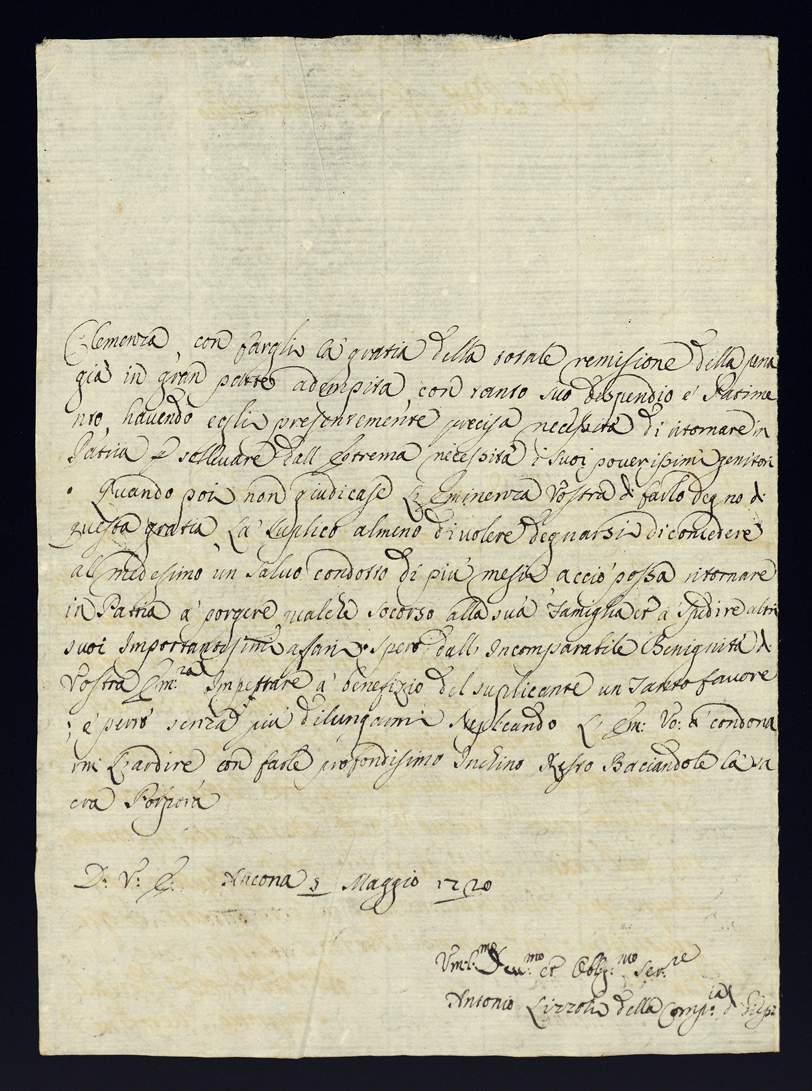 Clemenza, con fargli la gratia della totale remisione della pena
già in gran parte adempita con tanto suo dispendio e Patime
nto, havendo egli presentemente precisa necessità di ritornare in
Patria p sollevare dall estrema necessità i suoi poverisimi genitori
Quando poi non giudicase L'Eminenza Vostra di farlo degno di
questa gratia La suplico almeno di volere degnarsi di concedere
al medesimo un salvo condotto di più mesi acciò possa ritornare
in Patria a porgere qualche socorso alla sua famiglia et a spedire altri
suoi Importantisimi affari spero dall Incomparabile Benignità di
Vostra Em:za Impettare a benefizio del suplicante un tanto favore
; e però senza più dilungarmi suplicando L'Em: Vo: a condona
rmi L'ardire con farle profondisimo Inchino Resto Baciandole la sa
cra Porpora
D: V: E: Ancona 5 Maggio 1720
Um:l:mo Deu:mo et Obbg:mo Ser:re
Antonio Lizzoli della Comp:ia d